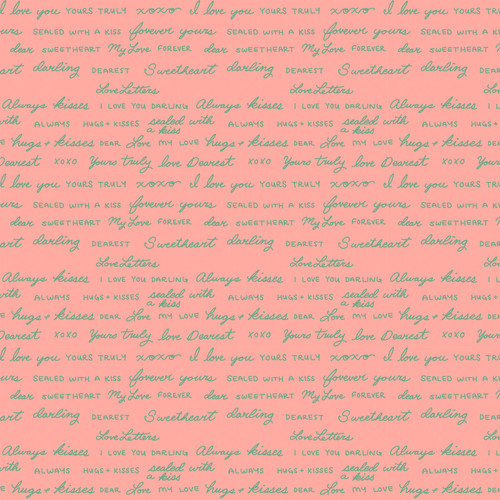 I love you YOURS TRULY xoxo I love you YOURS TRULY xoxo I love you YOURS
yours SEALED WITH A KISS forever yours SEALED WITH A KISS forever yours SEALED WITH
dear SWEETHEART My Love FOREVER dear SWEETHEART My Love FOREVER dear SWEETHEART M
art darling DEAREST Sweetheart darling DEAREST Sweetheart darling DEAREST
Love Letters Love Letters Lov
Always kisses I LOVE YOU DARLING Always kisses I LOVE YOU DARLING Always kisses
with ALWAYS HUGS + KISSES sealed with a kiss ALWAYS HUGS + KISSES sealed with a kiss ALWAYS HUG
E hugs + kisses DEAR Love MY LOVE hugs + kisses DEAR Love MY LOVE hugs + kisses
Dearest xoxo Yours truly love Dearest xoxo Yours truly love Dearest
I love you YOURS TRULY xoxo I love you YOURS TRULY xoxo I love you YOURS
yours SEALED WITH A KISS forever yours SEALED WITH A KISS forever yours SEALED WITH
dear SWEETHEART My Love FOREVER dear SWEETHEART My Love FOREVER dear SWEETHEART M
art darling DEAREST Sweetheart darling DEAREST Sweetheart darling DEAREST
Love Letters Love Letters Lov
Always kisses I LOVE YOU DARLING Always kisses I LOVE YOU DARLING Always kisses
with ALWAYS HUGS + KISSES sealed with a kiss ALWAYS HUGS + KISSES sealed with a kiss ALWAYS HUG
E hugs + kisses DEAR Love MY LOVE hugs + kisses DEAR Love MY LOVE hugs + kisses
Dearest xoxo Yours truly love Dearest xoxo Yours truly love Dearest
I love you YOURS TRULY xoxo I love you YOURS TRULY xoxo I love you YOURS
yours SEALED WITH A KISS forever yours SEALED WITH A KISS forever yours SEALED WITH
dear SWEETHEART My Love FOREVER dear SWEETHEART My Love FOREVER dear SWEETHEART M
art darling DEAREST Sweetheart darling DEAREST Sweetheart darling DEAREST
Love Letters Love Letters Lov
Always kisses I LOVE YOU DARLING Always kisses I LOVE YOU DARLING Always kisses
with ALWAYS HUGS + KISSES sealed with a kiss ALWAYS HUGS + KISSES sealed with a kiss ALWAYS HUG
E hugs + kisses DEAR Love MY LOVE hugs + kisses DEAR Love MY LOVE hugs + kisses